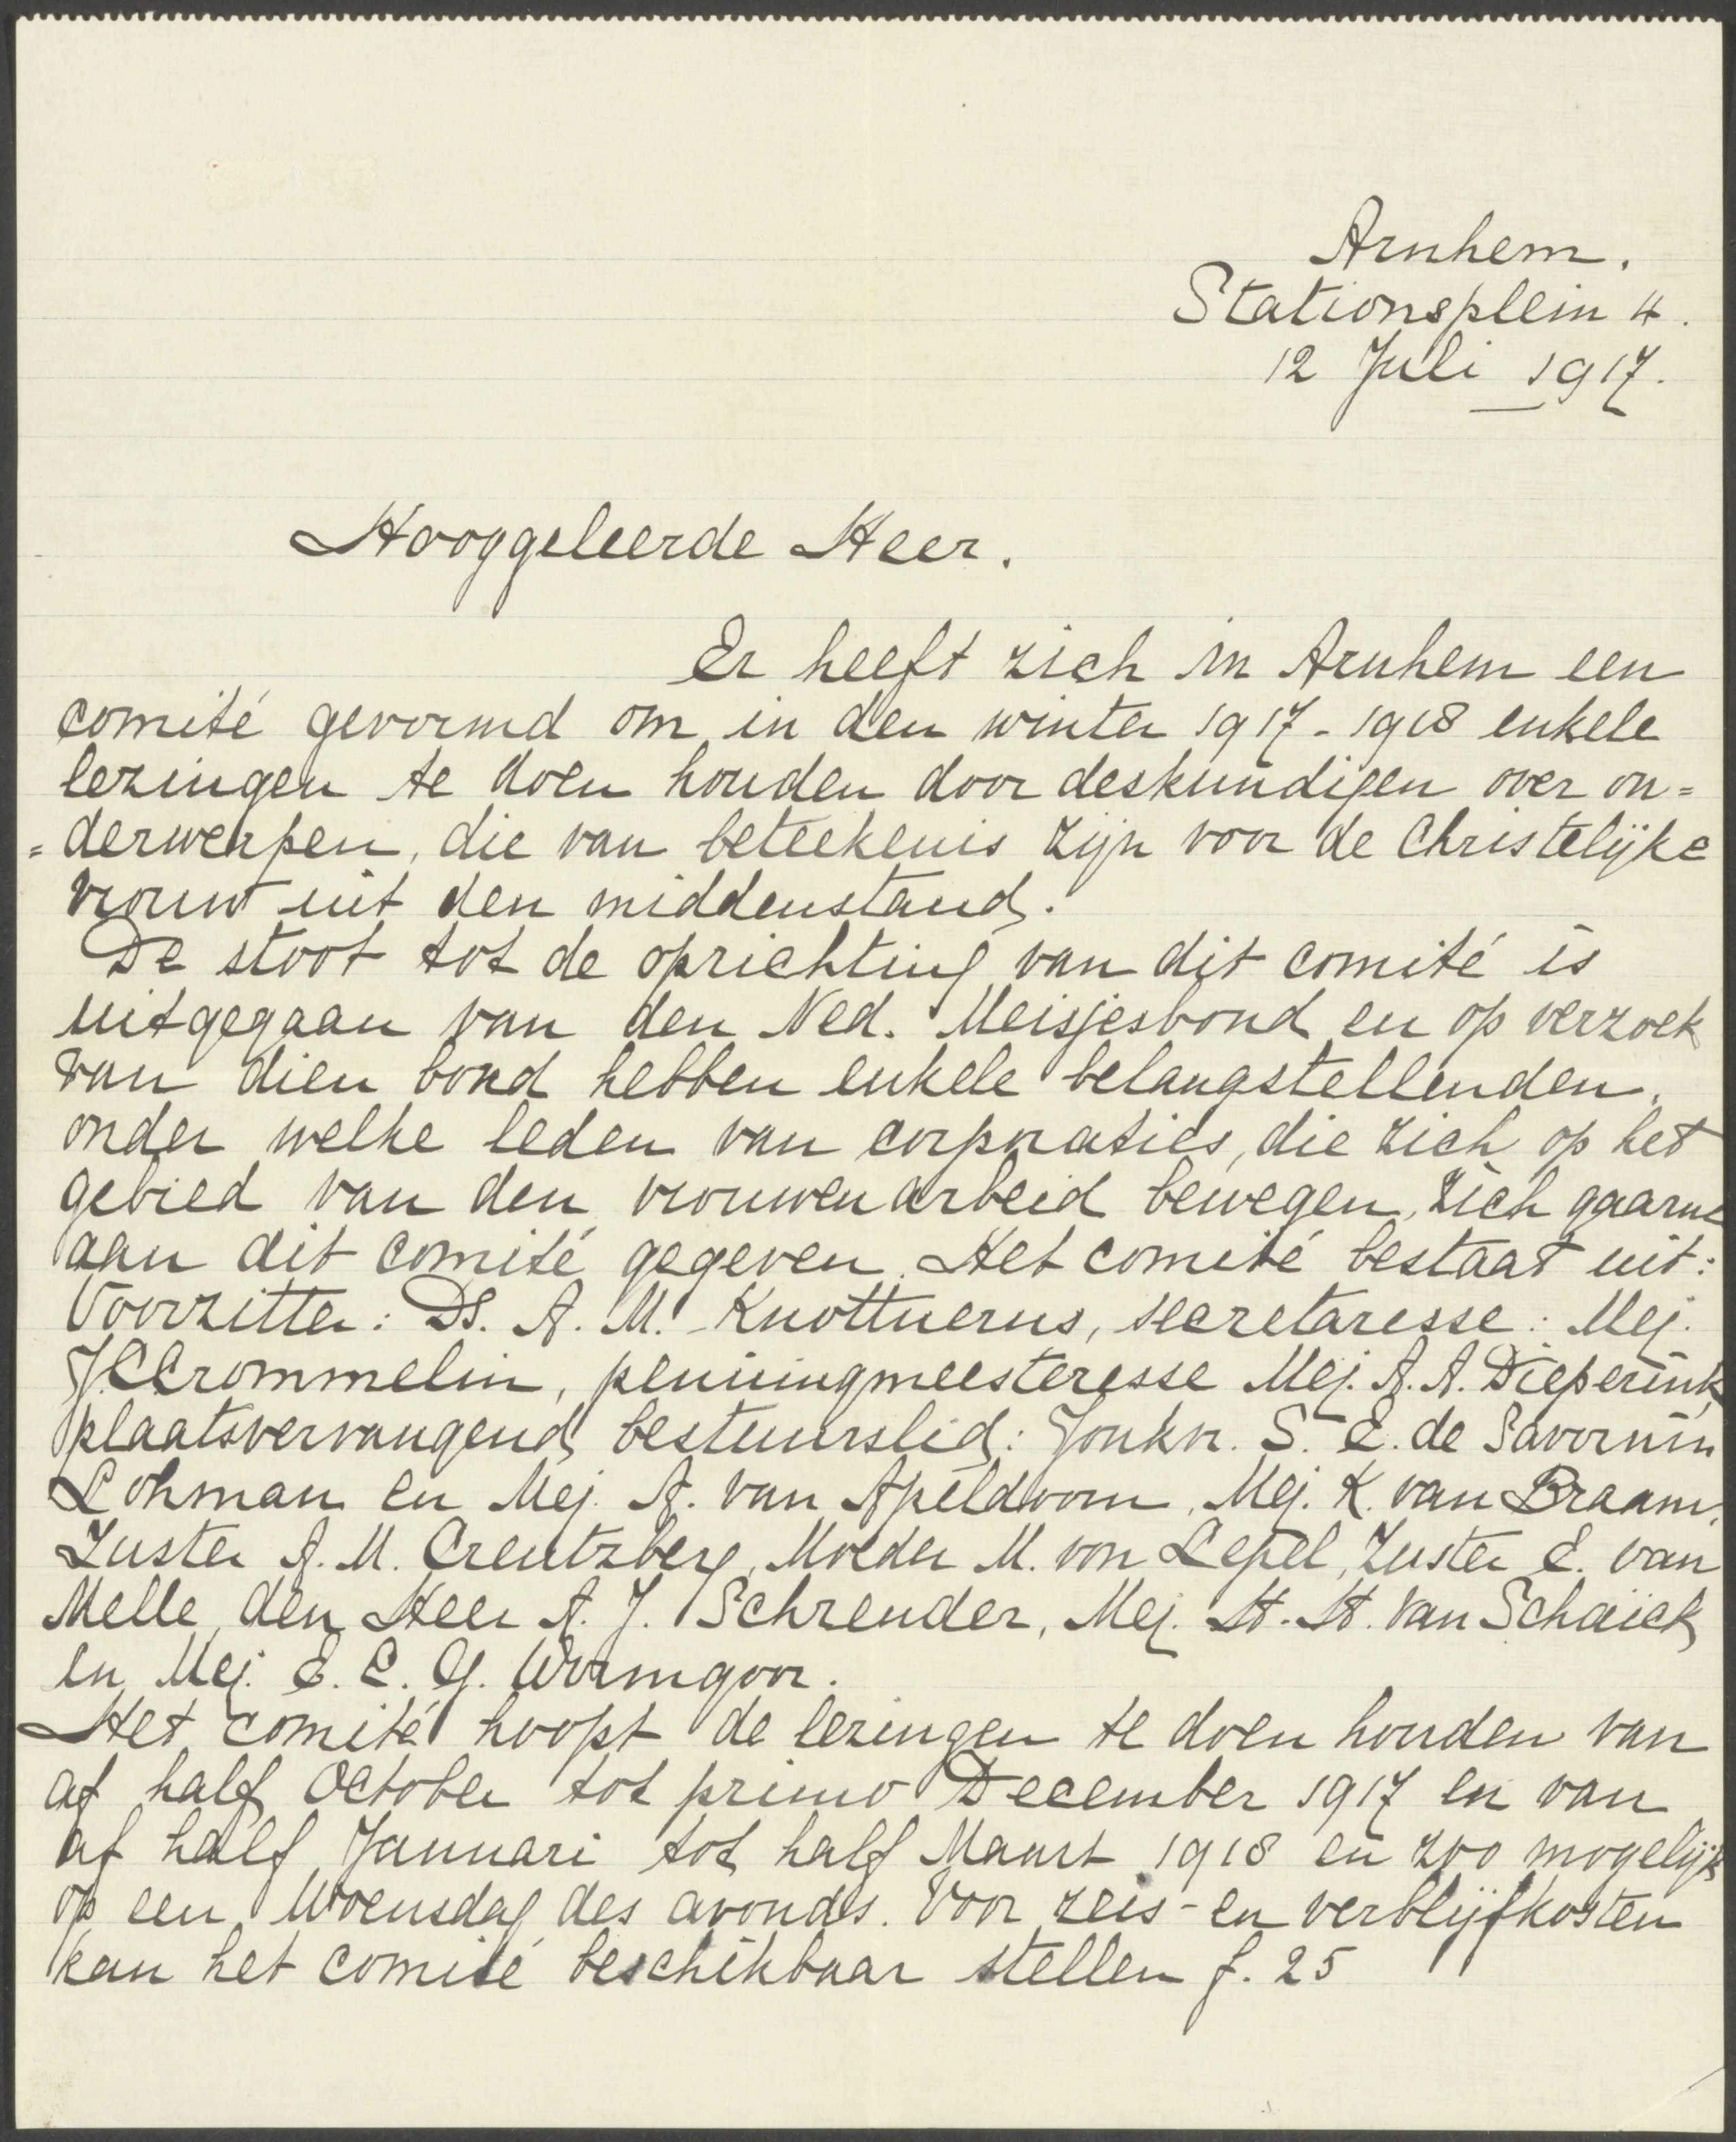 Arnhem.
Stationsplein 4.
12 Juli 1917.
Hooggeleerde Heer.
Er heeft zich in Arnhem een
comité gevormd om in den winter 1917-1918 enkele
lezingen te doen houden door deskundigen over on=
=derwerpen, die van beteekenis zijn voor de Christelijke
vrouw uit den middenstand.
De stoot tot de oprichting van dit comité is
uitgegaan van den Ned. Meisjesbond en op verzoek
van dien bond hebben enkele belangstellenden,
onder welke leden van corporaties, die zich op het
gebied van den vrouwenarbeid bewegen, zich gaarne
aan dit comité gegeven. Het comité bestaat uit:
Voorzitter: Ds. A. M. Knottnerus, secretaresse: Mej.
J.C.Crommelin, penningmeesteresse Mej. A. A. Dieperink,
plaatsvervangend bestuurslid: Jonkvr. S. E. de Savornin
Lohman en Mej. A. van Apeldoorn, Mej. K. van Braam,
Zuster A. M. Creutzberg, Moeder M. von Lepel, Zuster E. van
Melle, den Heer A. J. Schreuder, Mej. H. H. van Schaick
en Mej. E. C. G. Wormgoor.
Het comité hoopt de lezingen te doen houden van
af half October tot primo December 1917 en van
af half Januari tot half Maart 1918 en zoo mogelijk
op een Woensdag des avonds. Voor reis- en verblijfkosten
kan het comité beschikbaar stellen f. 25